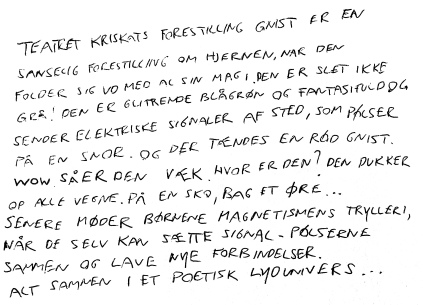 TEATRET KRISKATS FORESTILLING GNIST ER EN
SANSELIG FORESTILLING OM HJERNEN, NÅR DEN
FOLDER SIG UD MED AL SIN MAGI. DEN ER SLET IKKE
GRÅ! DEN ER GLITRENDE BLÅGRØN OG FANTASIFULD OG
SENDER ELEKTRISKE SIGNALER AF STED, SOM PØLSER
PÅ EN SNOR. OG DER TÆNDES EN RØD GNIST.
WOW. SÅ ER DEN VÆK. HVOR ER DEN? DEN DUKKER
OP ALLE VEGNE. PÅ EN SKO, BAG ET ØRE...
SENERE MØDER BØRNENE MAGNETISMENS TRYLLERI,
NÅR DE SELV KAN SÆTTE SIGNAL-PØLSERNE
SAMMEN OG LAVE NYE FORBINDELSER.
ALT SAMMEN I ET POETISK LYDUNIVERS...